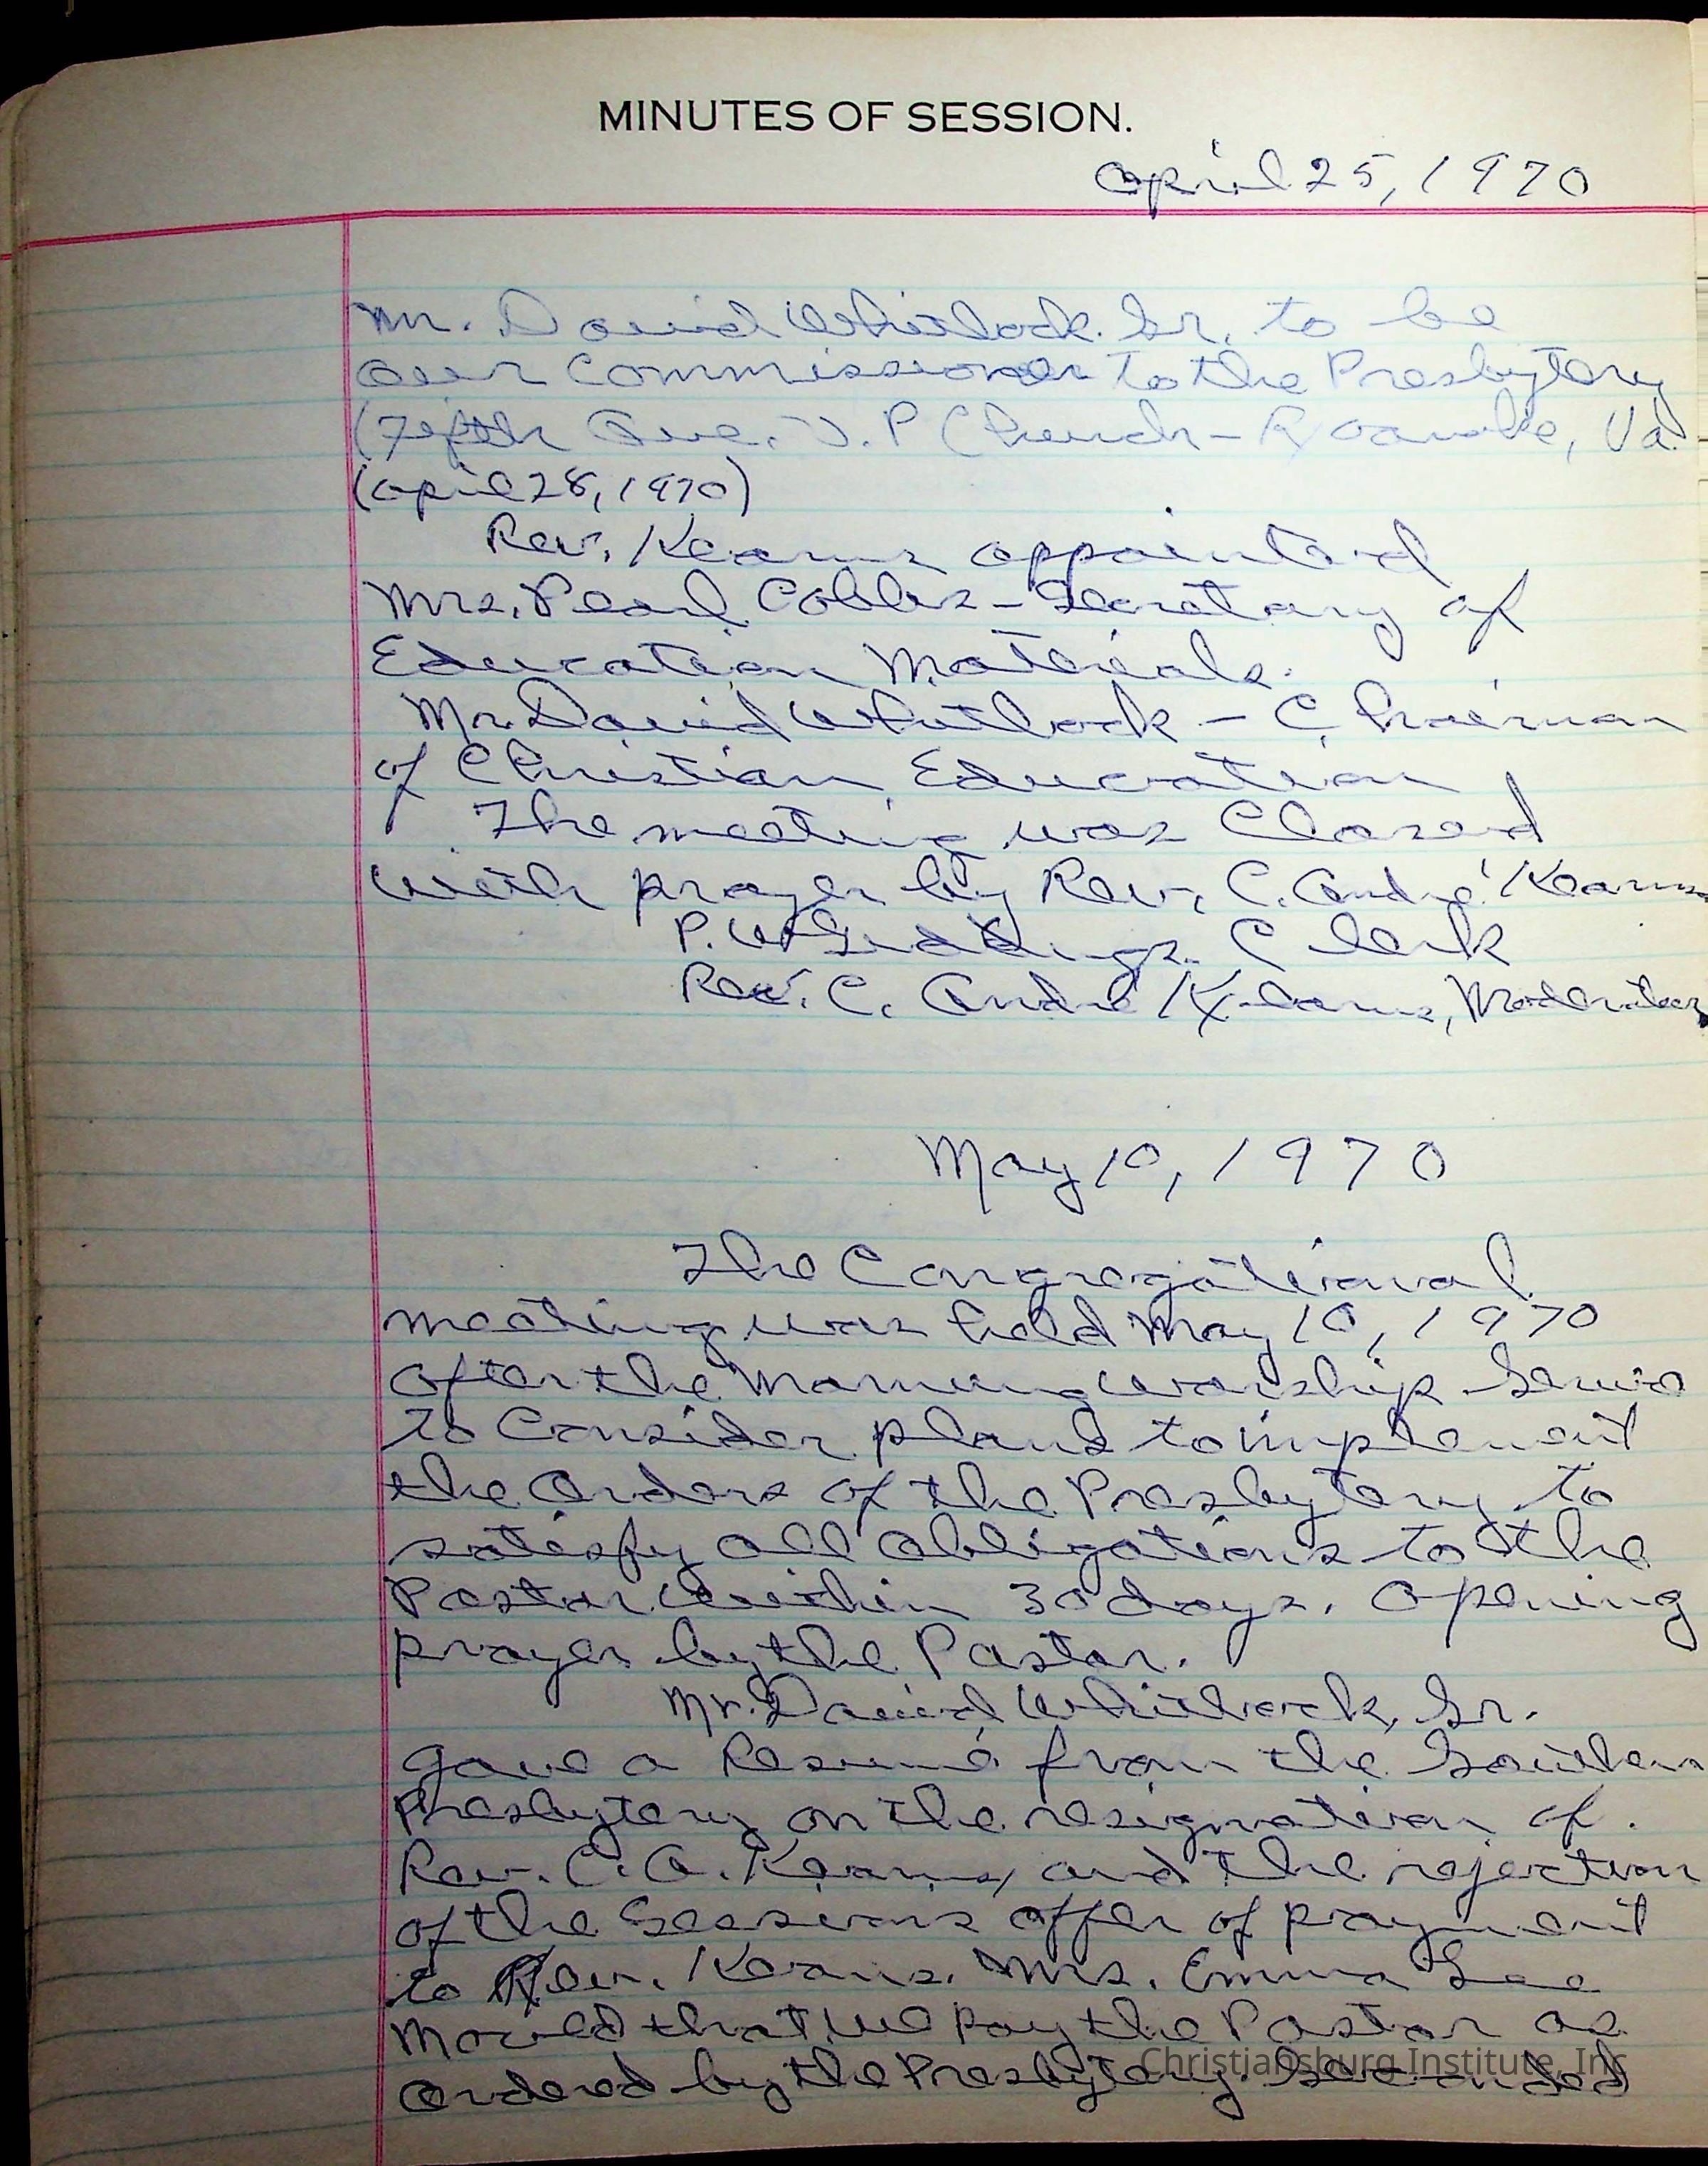 MINUTES OF SESSION.
April 25, 1970
Mr. David Whitlock Sr. to be
our Commissioner to the Presbytery
(Fifth Ave. U.P Church - Roanoke, Va.
(April 28, 1970)
Rev. Kearns appointed
Mrs. Pearl Cobbs - Secretary of
Education Materials.
Mr. David Whitlock - Chairman
of Christian Education
The meeting was Closed
with prayer by Rev. C. André Kearns
P. W. Giddings. Clerk
Rev. C. André Kearns, Moderator
May 10, 1970
The Congregational
meeting was held May 10, 1970
after the Morning worship Service
to Consider plans to implement
the Orders of the Presbytery to
satisfy all obligations to the
Pastor within 30 days. Opening
prayer by the Pastor.
Mr. David Whitlock, Sr.
gave a Resumé from the Southern
Presbytery on the resignation of
Rev. C. A. Kearns, and the rejection
of the Sessions offer of payment
to Rev. Kearns. Mrs. Emma Lee
Moved that we pay the Pastor as
ordered by the Presbytery. Seconded
Christiansburg Institute, Inc